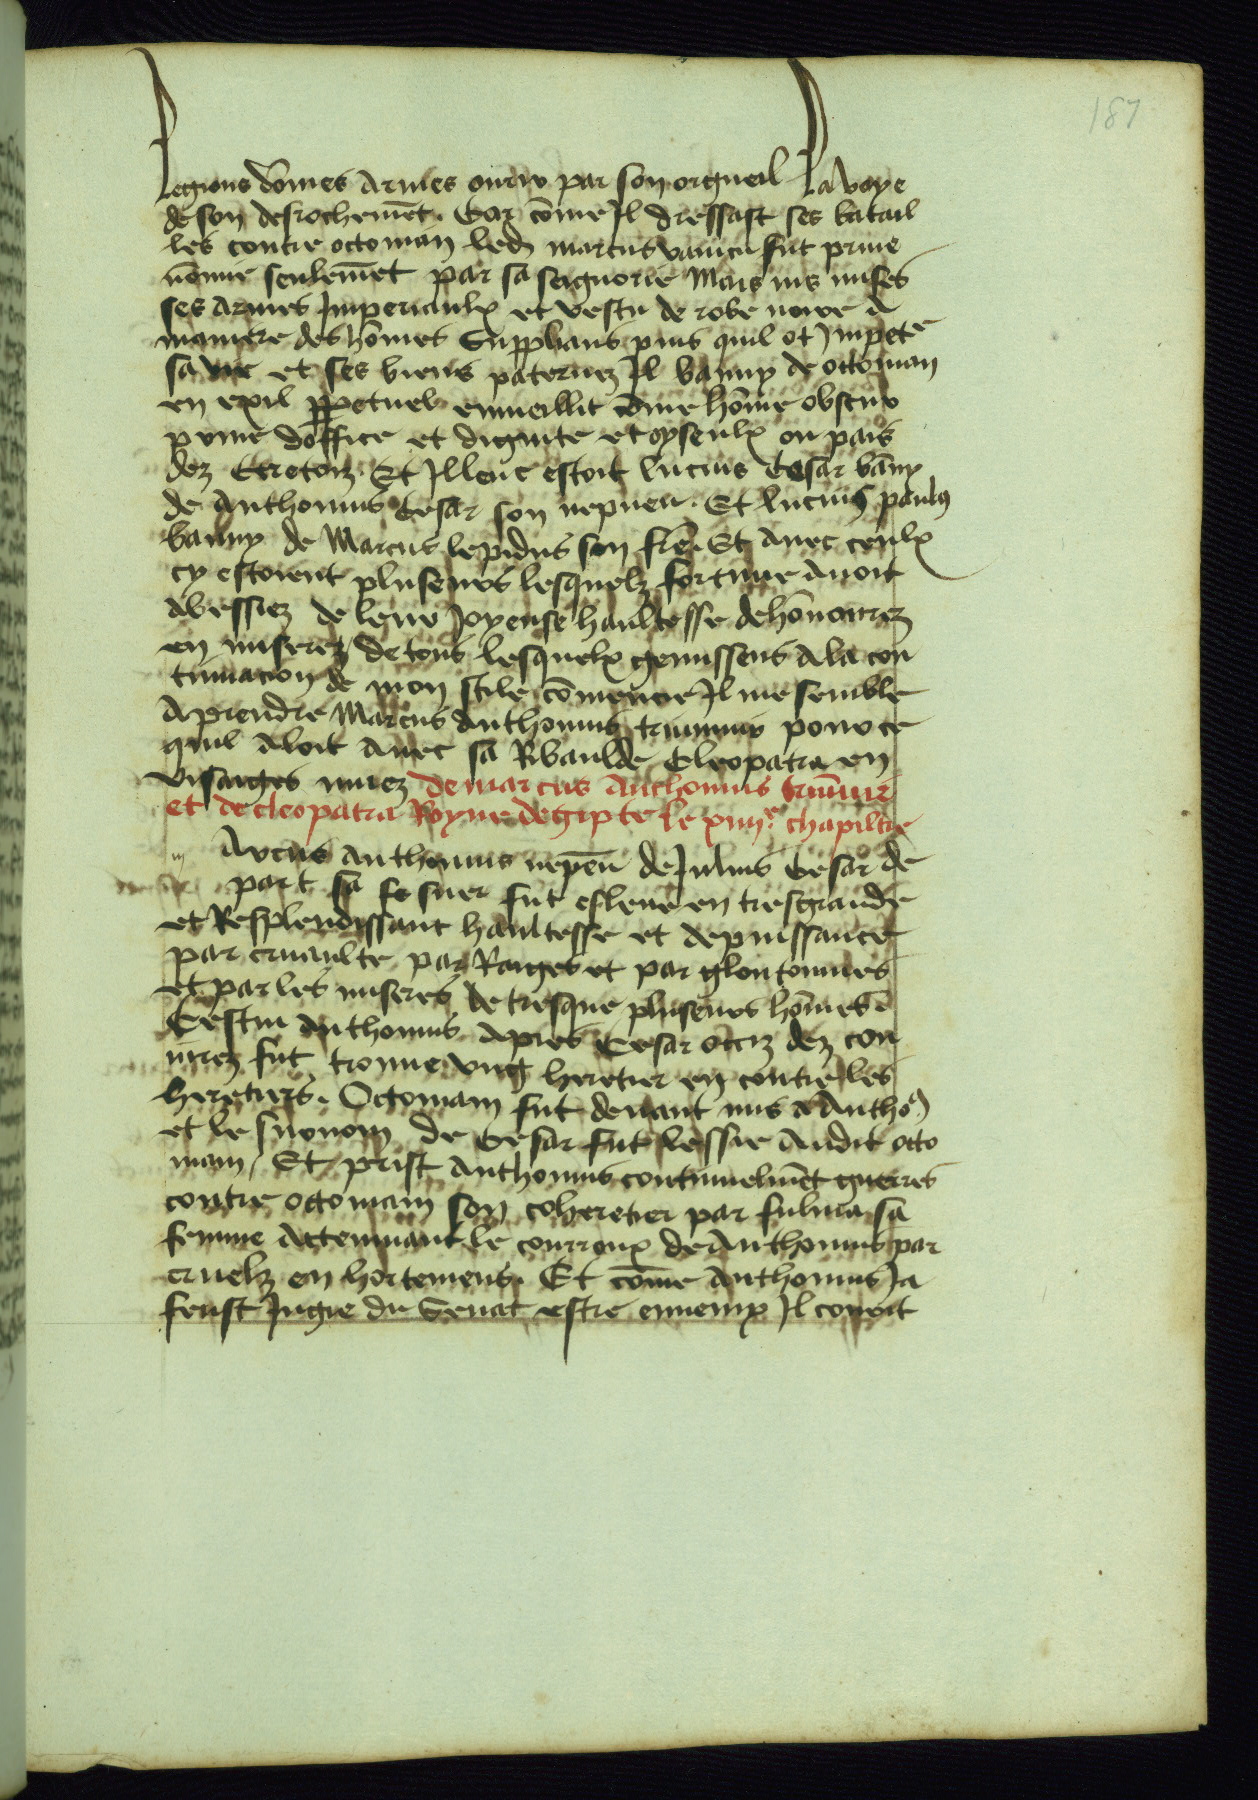 187
Legions dõmes armes ouriv par son orgueil La voye
de son desrochemẽt. Car cõme Il dressast ses batail
les contre octouian led marcus vaincu fut priue
nõnne seulemẽt par sa seignorie Mais ius mises
ses armes Imperiaulx et vestu de robe noire a
maniere des hõmes supplians puis quil ot Impet̃e
sa vie et ses biens paternez Il banny de octouian
en exil ppetuel enuieillit cõme hõme obscur
priue doffice et dignite et oyseulx ou pais
dez Cretoiz. Et Illenc estoit lucius Cesar bãny
de anthonius Cesar son nepueu. Et lucius paulus
banny de Marcus lepidus son fre. Et auec ceulx
cy estoient pluseurs lesquelz fortune auoit
abessiez de leur Joyeuse haultesse dehõnourez
en miserez de tous lesquelx gemissens a la con
tinuacion de mon stile cõmencie Il me semble
a prendre Marcus anthonius triumuir pour ce
quil aloit auec sa Ribaulde Cleopatra en
visaiges muez de marcus Anthonius triũuir
et de cleopatra Royne degipte le xiiiie chapiltre
m Arcus anthonius nepeũ de Julius Cesar de
part sa se suer fut esleue en tresgrande
et Resplendissant haultesse et de puissance
par cruaulte par Raiges et par gloutonnies
et par les miseres de tresque pluseurs hõmes
Cestui anthonius apres Cesar occiz dez con
iurez fut trouue vng heretier en contre les
heretiers. Octouiam fut deuant mis a Antho
et le surnom de Cesar fut lessie audit octo
uiam. Et prist anthonius continuelmẽt guerres
contre octouiam son coheretier par fuluia sa
femme attenuant le courroux de Anthonius par
cruelz en hortemens. Et cõme anthonius Ja
feust Jugie du Senat estre ennemy Il couoit